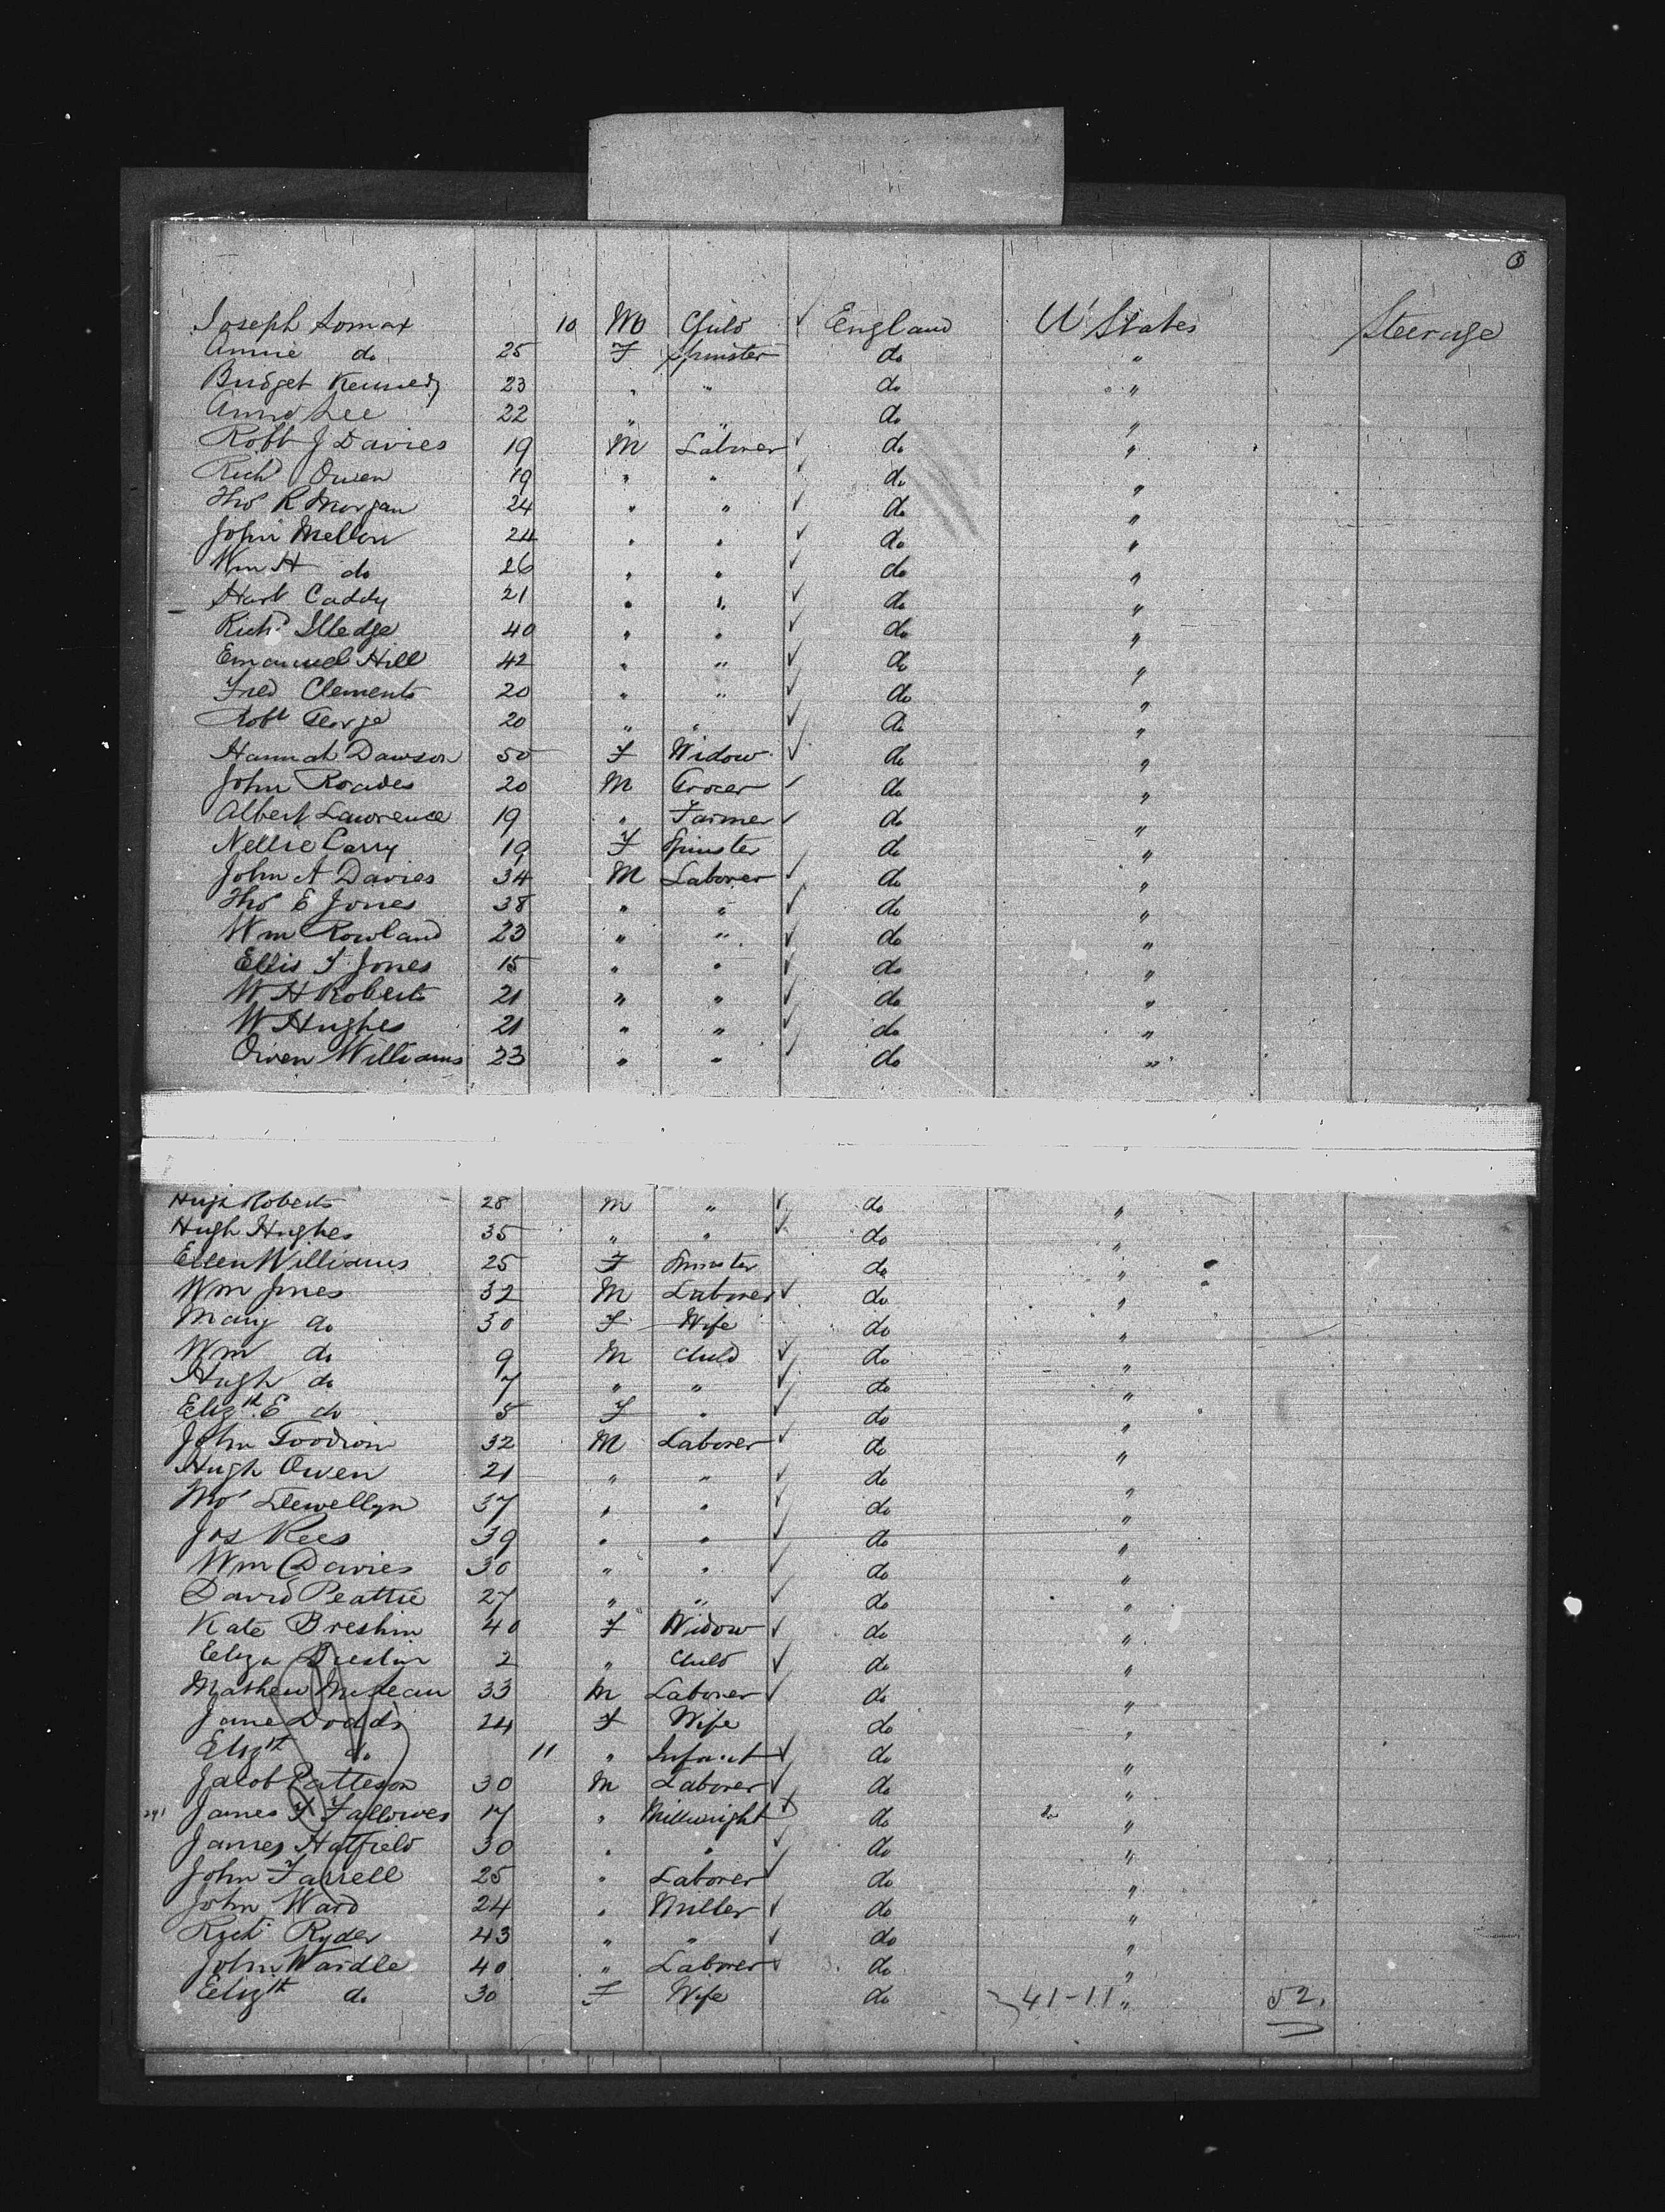 Joseph Lomax 10 M Child ✓ England U States Steerage
Annie do 25 F Spinster do "
Bridget Kennedy 23 " " do "
Anne Lee 22 " " do "
Robt J Davies 19 M Laborer ✓ do "
Richd Owen 19 " " ✓ do "
Thos R Morgan 24 " " ✓ do "
John Mellon 24 " " ✓ do "
Wm H do 26 " " ✓ do "
Hart Caddy 21 " " ✓ do "
Richd Illedge 40 " " ✓ do "
Emanuel Hill 42 " " ✓ do "
Fred Clements 20 " " ✓ do "
Robt George 20 " " ✓ do "
Hannah Dawson 50 F Widow ✓ do "
John Roades 20 M Grocer ✓ do "
Albert Lawrence 19 " Farmer ✓ do "
Nellie Carry 19 F Spinster do "
John A Davies 34 M Laborer ✓ do "
Thos E Jones 38 " " ✓ do "
Wm Rowland 23 " " ✓ do "
Ellis T Jones 15 " " ✓ do "
W H Roberts 21 " " ✓ do "
W Hughes 21 " " ✓ do "
Owen Williams 23 " " ✓ do "
Hugh Roberts 28 M " ✓ do "
Hugh Hughes 35 " " ✓ do "
Ellen Williams 25 F Spinster do "
Wm Jones 32 M Laborer ✓ do "
Mary do 30 F Wife do "
Wm do 9 M Child ✓ do "
Hugh do 7 " " ✓ do "
Elizth E do 5 F " ✓ do "
John Goodion 32 M Laborer ✓ do "
Hugh Owen 21 " " ✓ do "
Thos Llewellyn 37 " " ✓ do "
Jos Rees 39 " " ✓ do "
Wm Davies 30 " " ✓ do "
David Peattie 27 " " ✓ do "
Kate Breshin 40 F Widow ✓ do "
Eliza Breslin 2 " Child ✓ do "
Mathew 33 M Laborer ✓ do "
Jane Dodds 24 F Wife do "
Elizth do 11 " Infant ✓ do "
Jacob Patteson 30 M Laborer ✓ do "
James T Fallowes 17 " Millwright do "
James Hatfield 30 " " ✓ do "
John Farrell 25 " Laborer ✓ do "
John Ward 24 " Miller ✓ do "
Richd Ryder 43 " " ✓ do "
John Wardle 40 " Laborer ✓ do "
Elizth do 30 F Wife do 41-11 " 52.